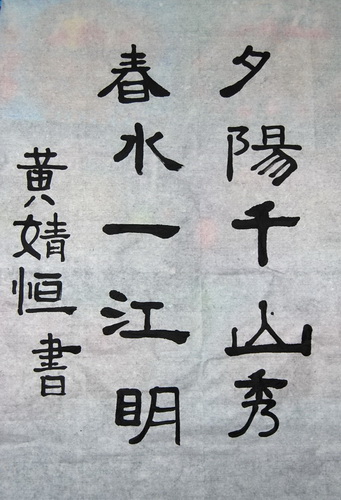 夕陽千山秀
春水一江明
黄婧恒書